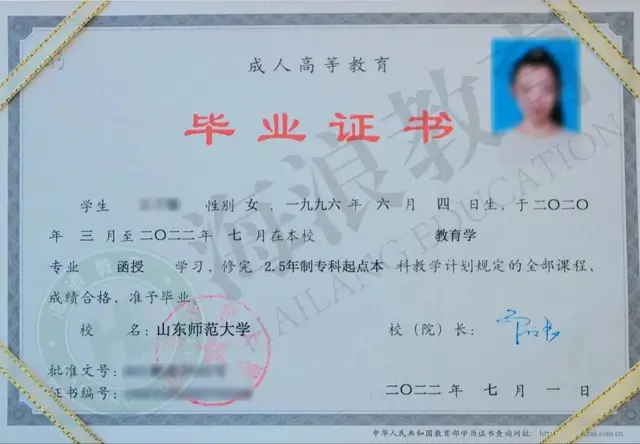 成人高等教育
毕业证书
学生 性别 女 ，一九九六年 六 月 四 日生，于二〇二〇
年 三 月至二〇二二年 七 月在本校 教育学
专业 函授 学习，修完 2.5年制专科起点本 科教学计划规定的全部课程，
成绩合格，准予毕业。
校 名：山东师范大学 校（院）长：
批准文号：
证书编号： 二〇二二年 七 月 一 日
中华人民共和国教育部学历证书查询网址：
海浪教育
HAILANG EDUCATION